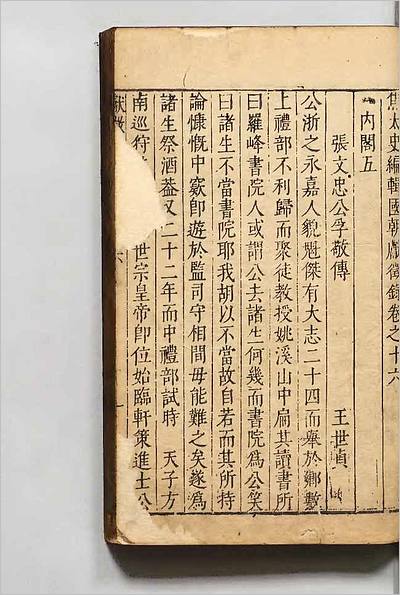 焦太史編輯國朝獻徵錄卷之十六
內閣五
張文忠公孚敬傳
王世貞
公浙之永嘉人貌魁傑有大志二十四而舉於鄉數
上禮部不利歸而聚徒教授姚溪山中扁其讀書所
曰羅峰書院人或謂公去諸生何幾而書院為公笑
曰諸生不當書院耶我胡以不當故自若而其所持
論慷慨中窾卽遊於監司守相間毋能難之矣遂為
諸生祭酒葢又二十二年而中禮部試時 天子方
南巡狩 世宗皇帝卽位始臨軒策進士公
獻徵